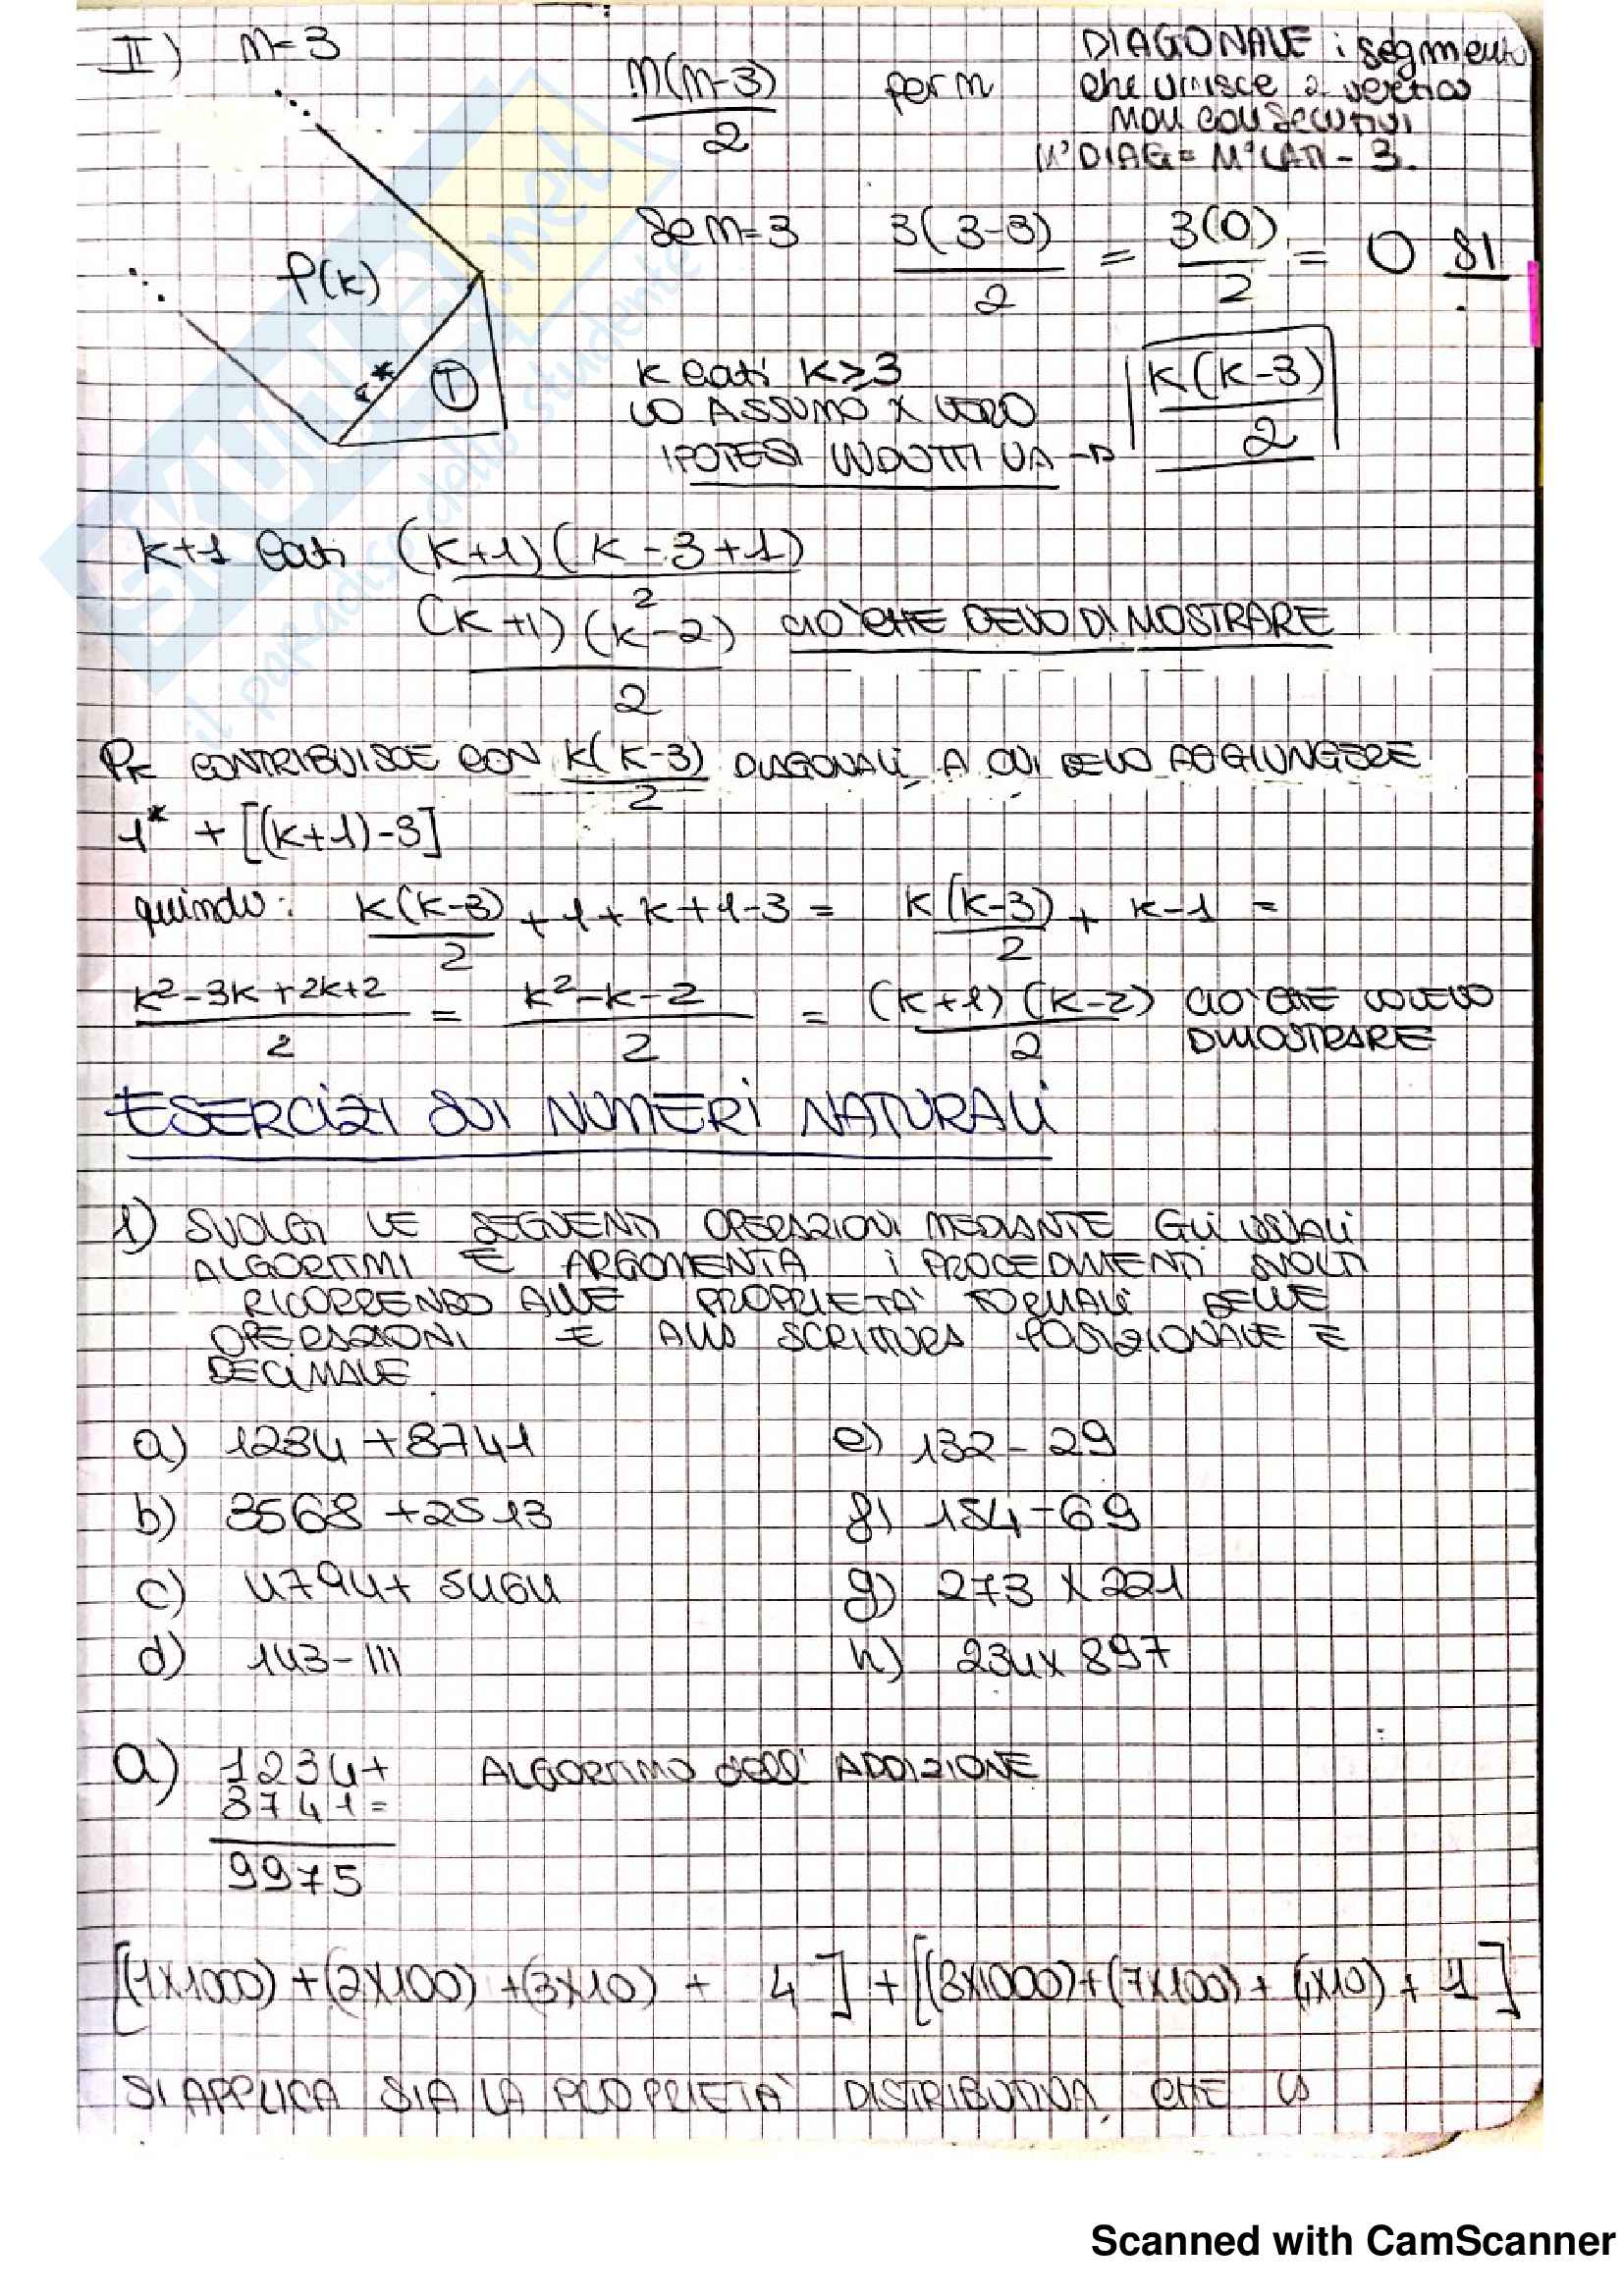 II) n=3
n(n-3)/2 per n
DIAGONALE: segmento
che unisce 2 vertici
non consecutivi
N° DIAG = N° LATI - 3.
Se n=3 3(3-3)/2 = 3(0)/2 = 0 SI
P(k)
T
k lati k≥3
LO ASSUMO X VERO
IPOTESI INDUTTIVA → k(k-3)/2
k+1 lati (k+1)(k-3+1)/2
(k+1)(k-2)/2 CIO' CHE DEVO DIMOSTRARE
Pk CONTRIBUISCE CON k(k-3)/2 DIAGONALI, A CUI DEVO AGGIUNGERE
1* + [(k+1)-3]
quindi: k(k-3)/2 + 1 + k+1-3 = k(k-3)/2 + k-1 =
k²-3k+2k+2/2 = k²-k-2/2 = (k+1)(k-2)/2 CIO' CHE VOLEVO
DIMOSTRARE
ESERCIZI SUI NUMERI NATURALI
1) SVOLGI LE SEGUENTI OPERAZIONI MEDIANTE GLI USUALI
ALGORITMI E ARGOMENTA i PROCEDIMENTI SVOLTI
RICORRENDO ALLE PROPRIETA' FORMALI DELLE
OPERAZIONI E ALLA SCRITTURA POSIZIONALE E
DECIMALE.
a) 1234 + 8741
e) 132 - 29
b) 3568 + 2513
f) 154 - 69
c) 4794 + 5464
g) 273 x 221
d) 143 - 111
h) 234 x 897
a) 1234+ ALGORITMO dell' ADDIZIONE
8741=
9975
[(1x1000) + (2x100) + (3x10) + 4] + [(8x1000) + (7x100) + (4x10) + 1]
SI APPLICA SIA LA PROPRIETA' DISTRIBUTIVA, CHE LA
SKUOLA.net
il paradiso dello studente
Scanned with CamScanner